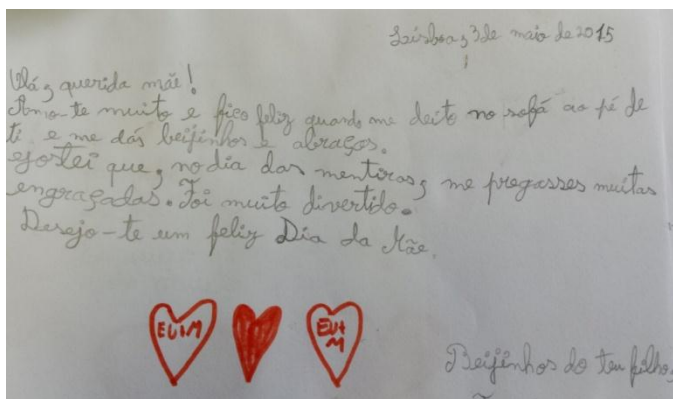 Lisboa, 3 de maio de 2015
Olá, querida mãe!
Amo-te muito e fico feliz quando me deito no sofá ao pé de
ti e me dás beijinhos e abraços.
Gostei que, no dia das mentiras, me pregasses muitas
engraçadas. Foi muito divertido.
Desejo-te um feliz Dia da Mãe.
EU+M
EU+
M
Beijinhos do teu filho,